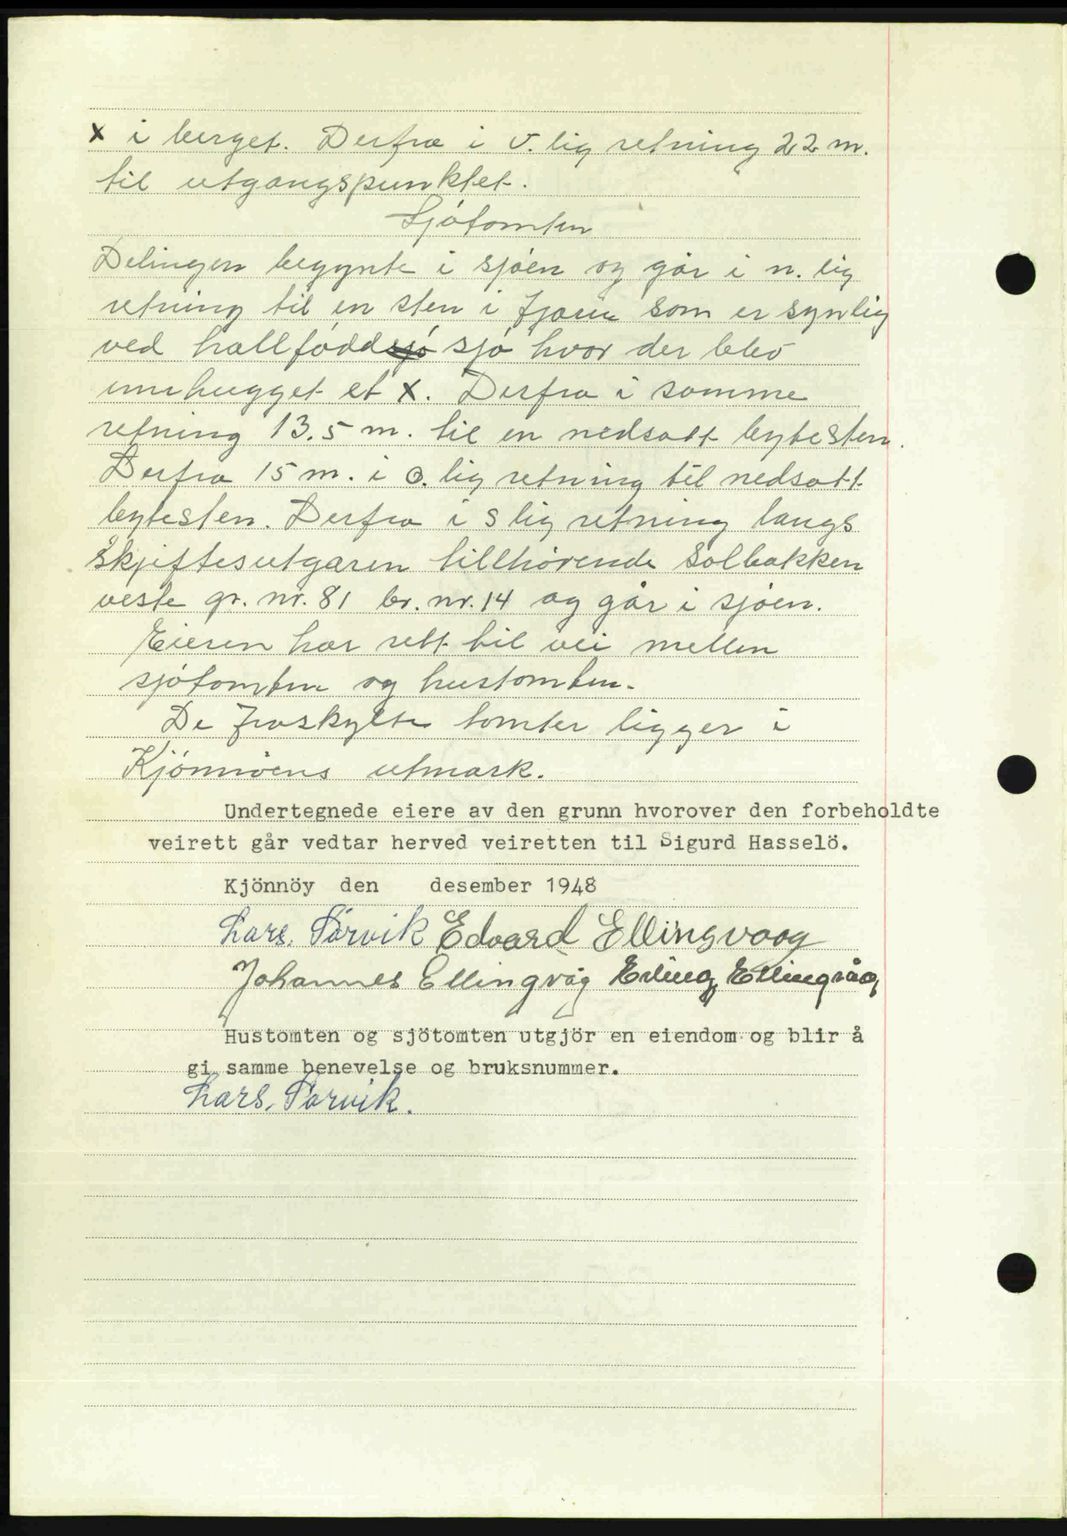 x i berget. Derfra i v. lig retning 22 m.
til utgangspunktet.
Sjøtomten
Delingen begynte i sjøen og går i n. lig
retning til en sten i fjæra som er synlig
ved hallfødd sjø sjø hvor der blev
innhugget et x. Derfra i samme
retning 13.5 m. til en nedsatt bytesten.
Derfra 15 m. i ø. lig retning til nedsatt
bytesten. Derfra i s lig retning langs
skjiftesutgaren tillhørende Solbakken
veste gr. nr. 81 br. nr. 14 og går i sjøen.
Eieren har rett til vei mellen
sjøtomten og hustomten.
De fraskylte tomter ligger i
Kjønnøens utmark.
Undertegnede eiere av den grunn hvorover den forbeholdte
veirett går vedtar herved veiretten til Sigurd Hasselö.
Kjönnöy den desember 1948
Lars. Sørvik Edvard Ellingvaag
Johannes Ellingvåg Erling Ellingvåg
Hustomten og sjötomten utgjör en eiendom og blir å
gi samme benevelse og bruksnummer.
Lars. Sørvik.